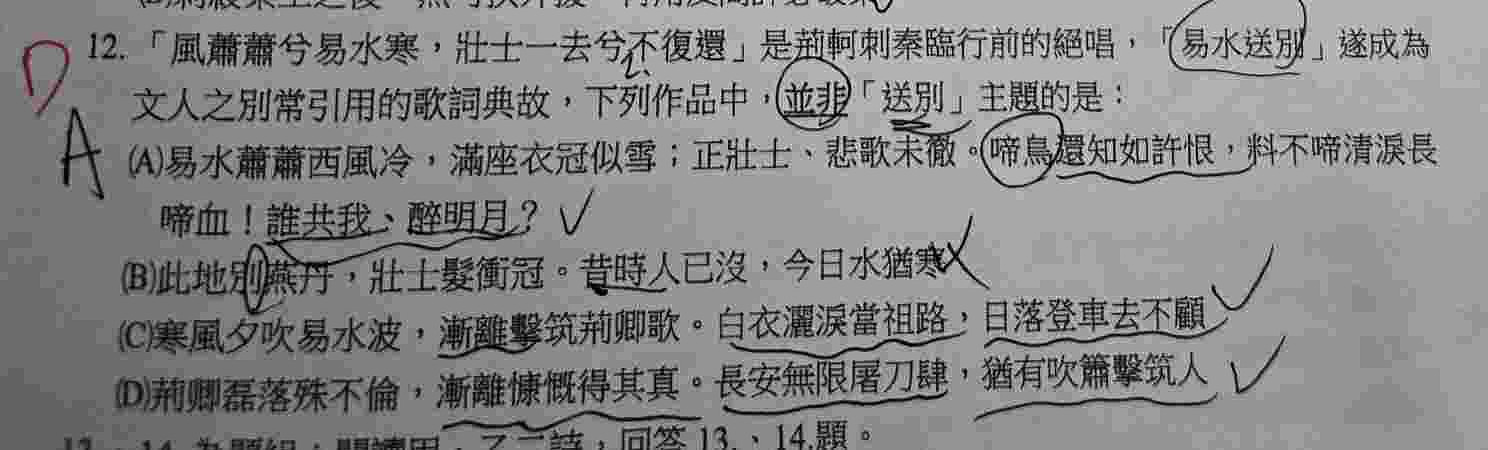 12.「風蕭蕭兮易水寒，壯士一去兮不復還」是荊軻刺秦臨行前的絕唱，「易水送別」遂成為
D
文人之別常引用的歌詞典故，下列作品中，並非「送別」主題的是：
A
(A)易水蕭蕭西風冷，滿座衣冠似雪；正壯士、悲歌未徹。啼鳥還知如許恨，料不啼清淚長
啼血！誰共我、醉明月？
(B)此地別燕丹，壯士髮衝冠。昔時人已沒，今日水猶寒
(C)寒風夕吹易水波，漸離擊筑荊卿歌。白衣灑淚當祖路，日落登車去不顧
(D)荊卿磊落殊不倫，漸離慷慨得其真。長安無限屠刀肆，猶有吹簫擊筑人
回答 13.、14.題。